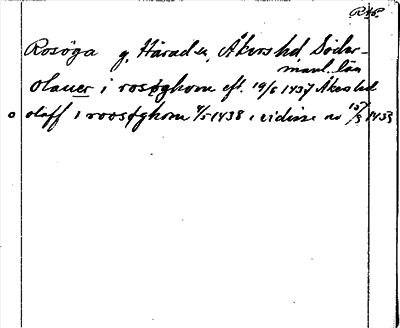 RAp.
Rosöga g. Härad sn, Åkers hd, Söder-
manl. län
olauer i rosøghom eft. 19/6 1437 Åkers hd
o oloff i roosøghom 4/5 1438, vidisse av 15/3 1453